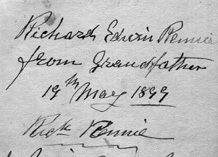 Richard Edwin Rennie
from Grandfather
19th May 1899
Rick Rennie